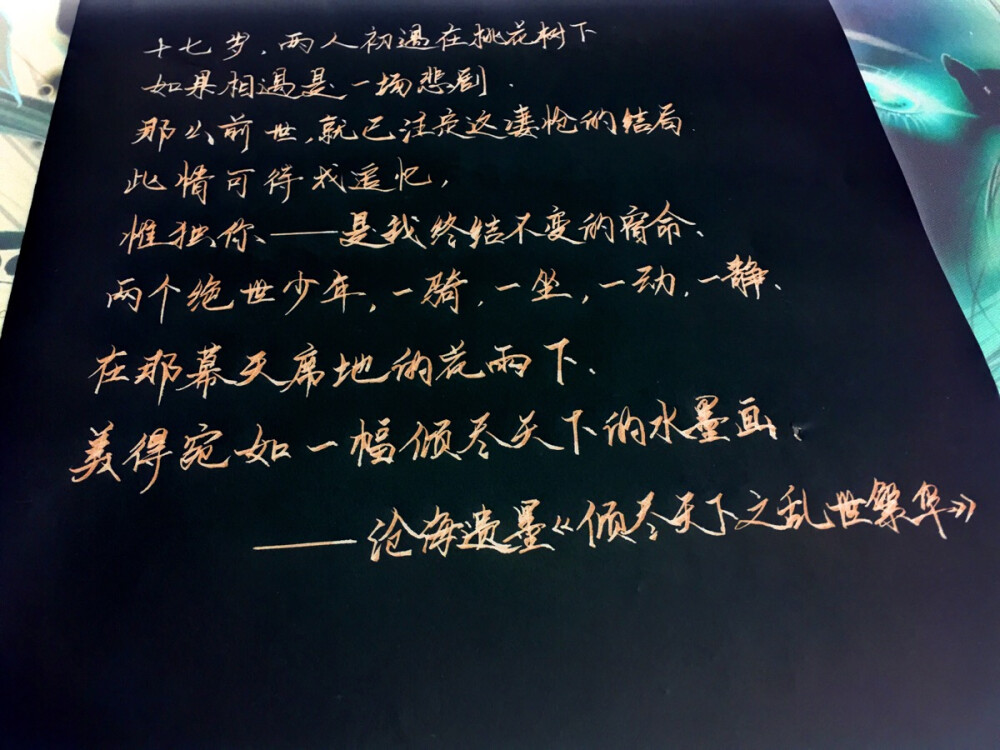 十七岁，两人初遇在桃花树下
如果相遇是一场悲剧．
那么前世，就已注定这凄怆的结局．
此情可待成追忆，
惟独你、——是我终结不变的宿命、
两个绝世少年，一骑，一坐，一动，一静、
在那幕天席地的花雨下、
美得宛如一幅倾尽天下的水墨画、
——沧海遗墨《倾尽天下之乱世繁华》